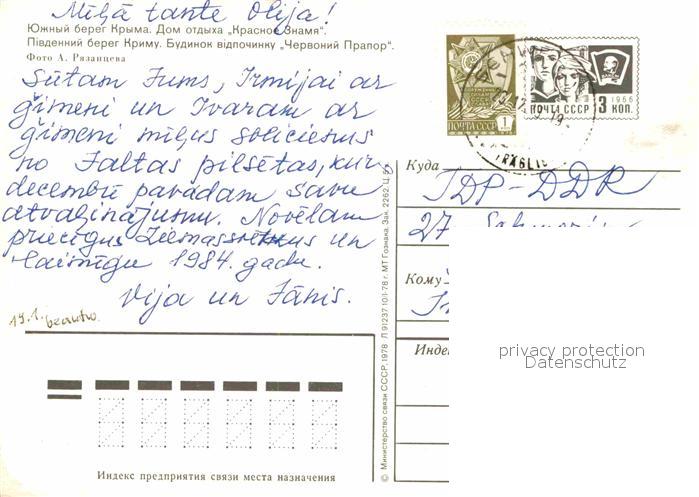 Mīļā tante Olija!
Южный берег Крыма. Дом отдыха „Красное Знамя“.
Південний берег Криму. Будинок відпочинку „Червоний Прапор“.
Фото А. Рязанцева
Sūtam Jums, Irmijai ar
ģimeni un Ivaram ar
ģimeni mīļus sveicienus
no Jaltas pilsētas, kur
decembrī pavadam savu
atvaļinājumu. Novēlam
priecīgus Ziemassvētkus un
laimīgu 1984. gadu.
Vija un Jānis.
19.1.
ПОЧТА СССР 1
1966
ПОЧТА СССР 3 КОП.
Куда
TDP-DDR
27
Кому
Инде
Индекс предприятия связи места назначения
© Министерство связи СССР, 1978 Л 91237 101-78 г. МТ Гознака. Зак. 2262. Ц. 5 к.
privacy protection
Datenschutz